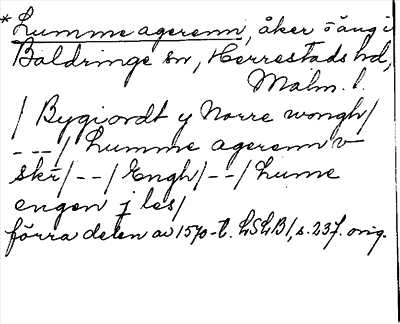 *Lumme agerenn, åker o äng i
Baldringe sn, Herrestads hd,
Malm. l.
/ Bygiordt y Norre wongh /
---/ Lumme agerenn v
skr/--/ Engh/--/ Lume
engen j les/
förra delen av 1570-t. LSLB1, s. 237. orig.